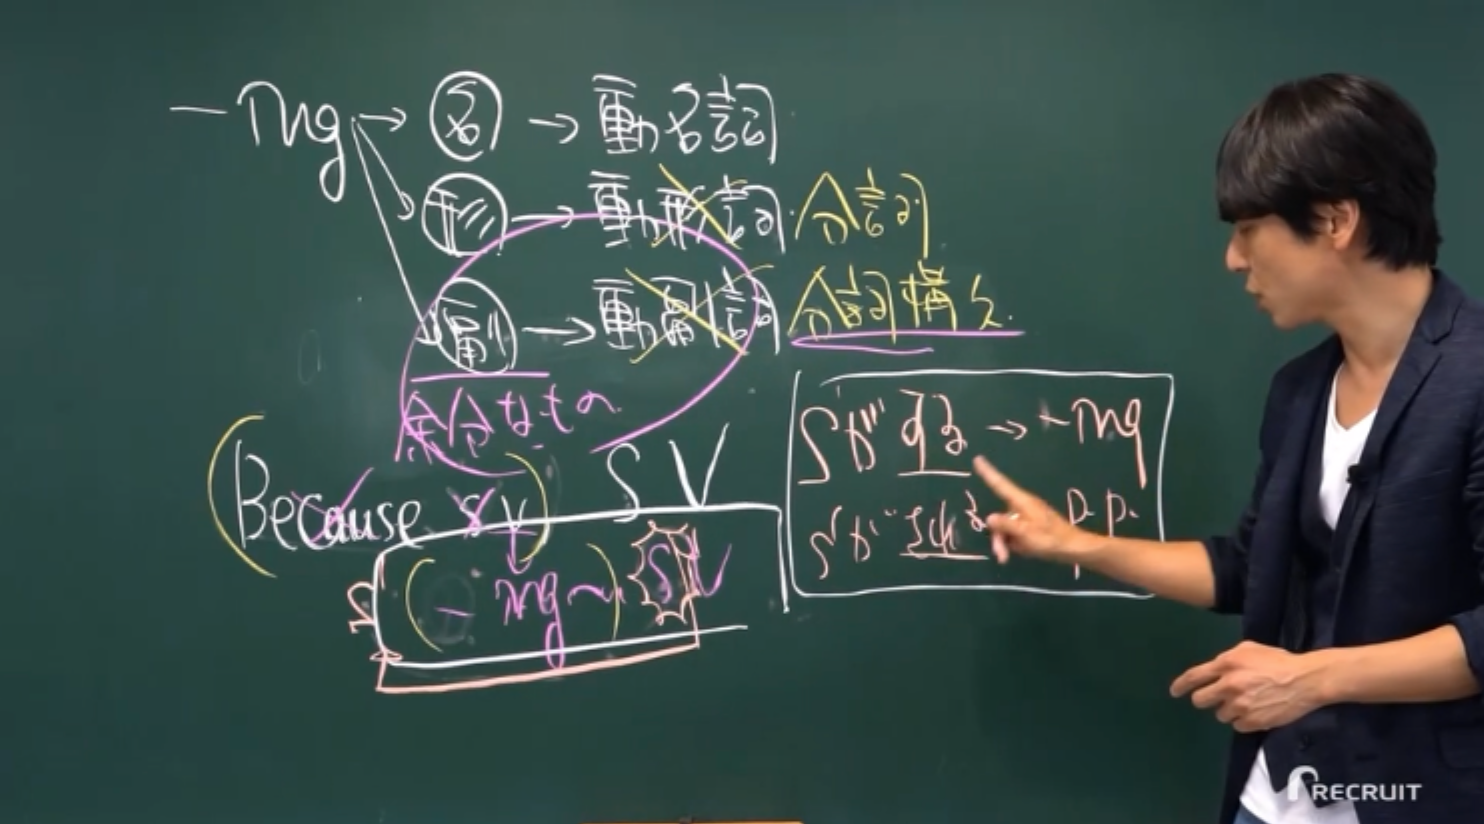 -ing → 名 → 動名詞
形 → 動形詞 分詞
副 → 動副詞 分詞構文
余分なもの
(Because s v) S V
(-ing ~) S V
Sが する → -ing
Sが される p.p.
RECRUIT